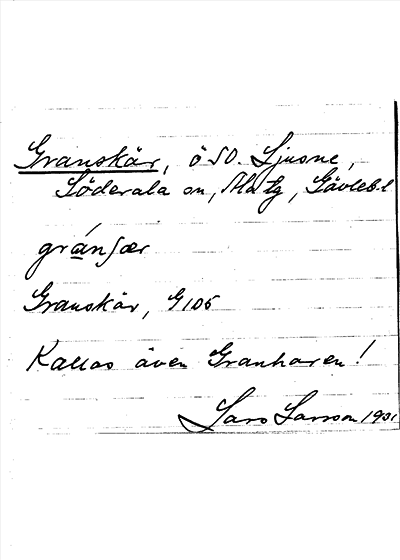 Granskär, ö SO. Ljusne,
Söderala sn, Ala tg, Gävleb.l
gránʃær
Granskär, G 105
Kallas även Granharen!
Lars Larsson 1931